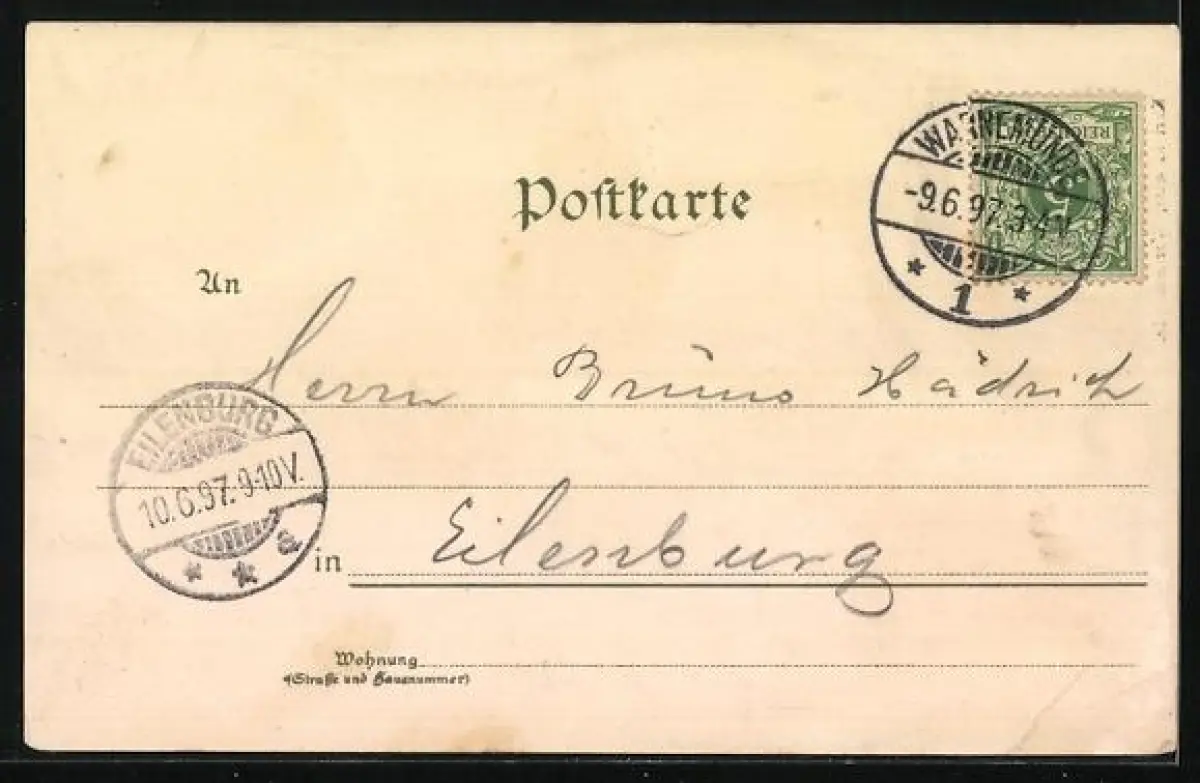 Postkarte
REICH
5
WARNEMÜNDE
-9.6.97.3-4V.
* 1 *
An
Herrn Bruno Hädrich
EILENBURG
10.6.97.9-10V.
* * a
in Eilenburg
Wohnung
(Straße und Hausnummer)